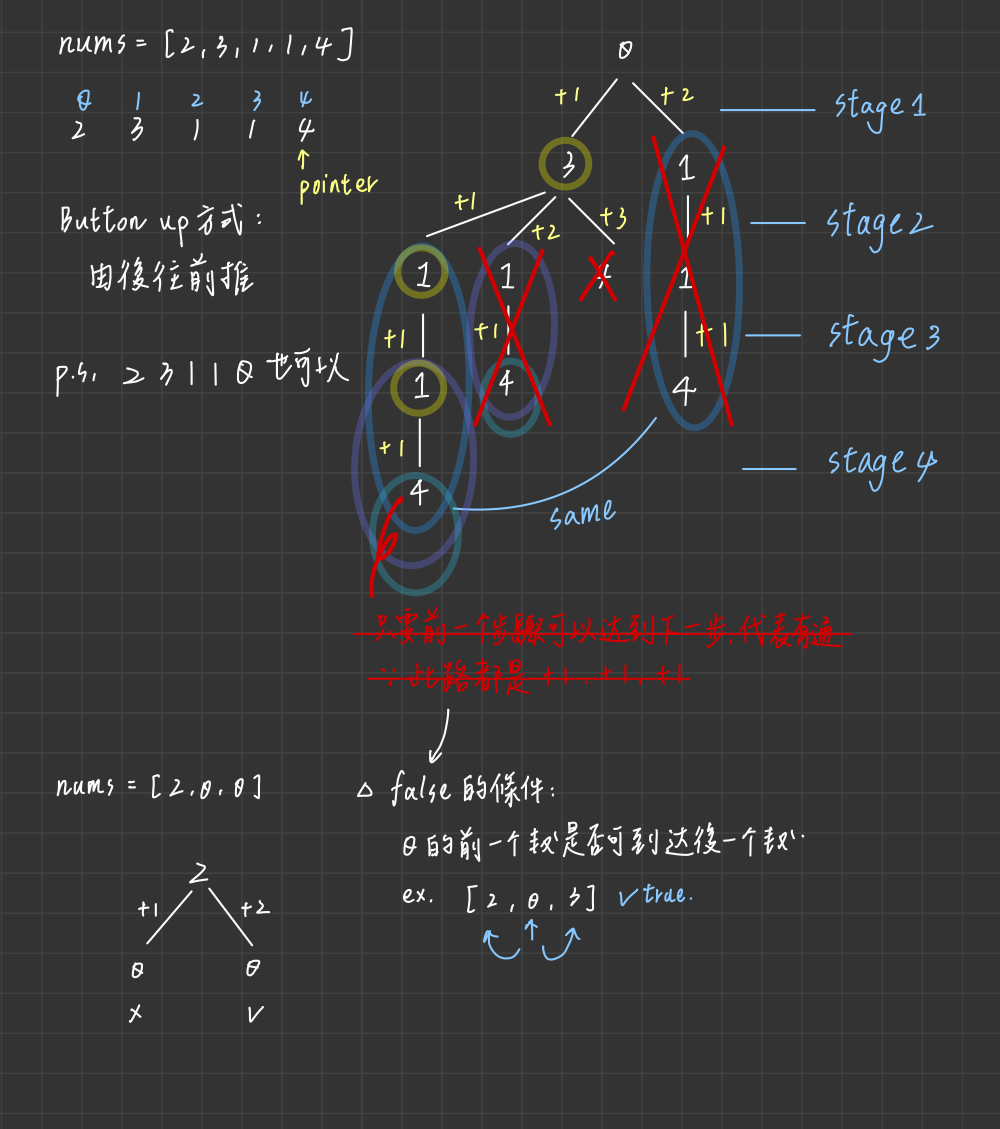 nums = [2, 3, 1, 1, 4]
0 1 2 3 4
2 3 1 1 4
↑
pointer
Button up 方式:
由後往前推
p.s. 2 3 1 1 0 也可以
0
+1 +2
stage 1
3 1
+1 +2 +3 +1
stage 2
1 1 4 1
+1 +1 +1
stage 3
1 4 4
+1
stage 4
4
same
只要前一个步驟可以达到下一步,代表有通
∵此路都是 +1, +1, +1
nums = [2, 0, 0]
2
+1 +2
0 0
x v
△ false 的條件:
0 的前一个數是否可到达後一个數
ex. [2, 0, 3] ✓ true.